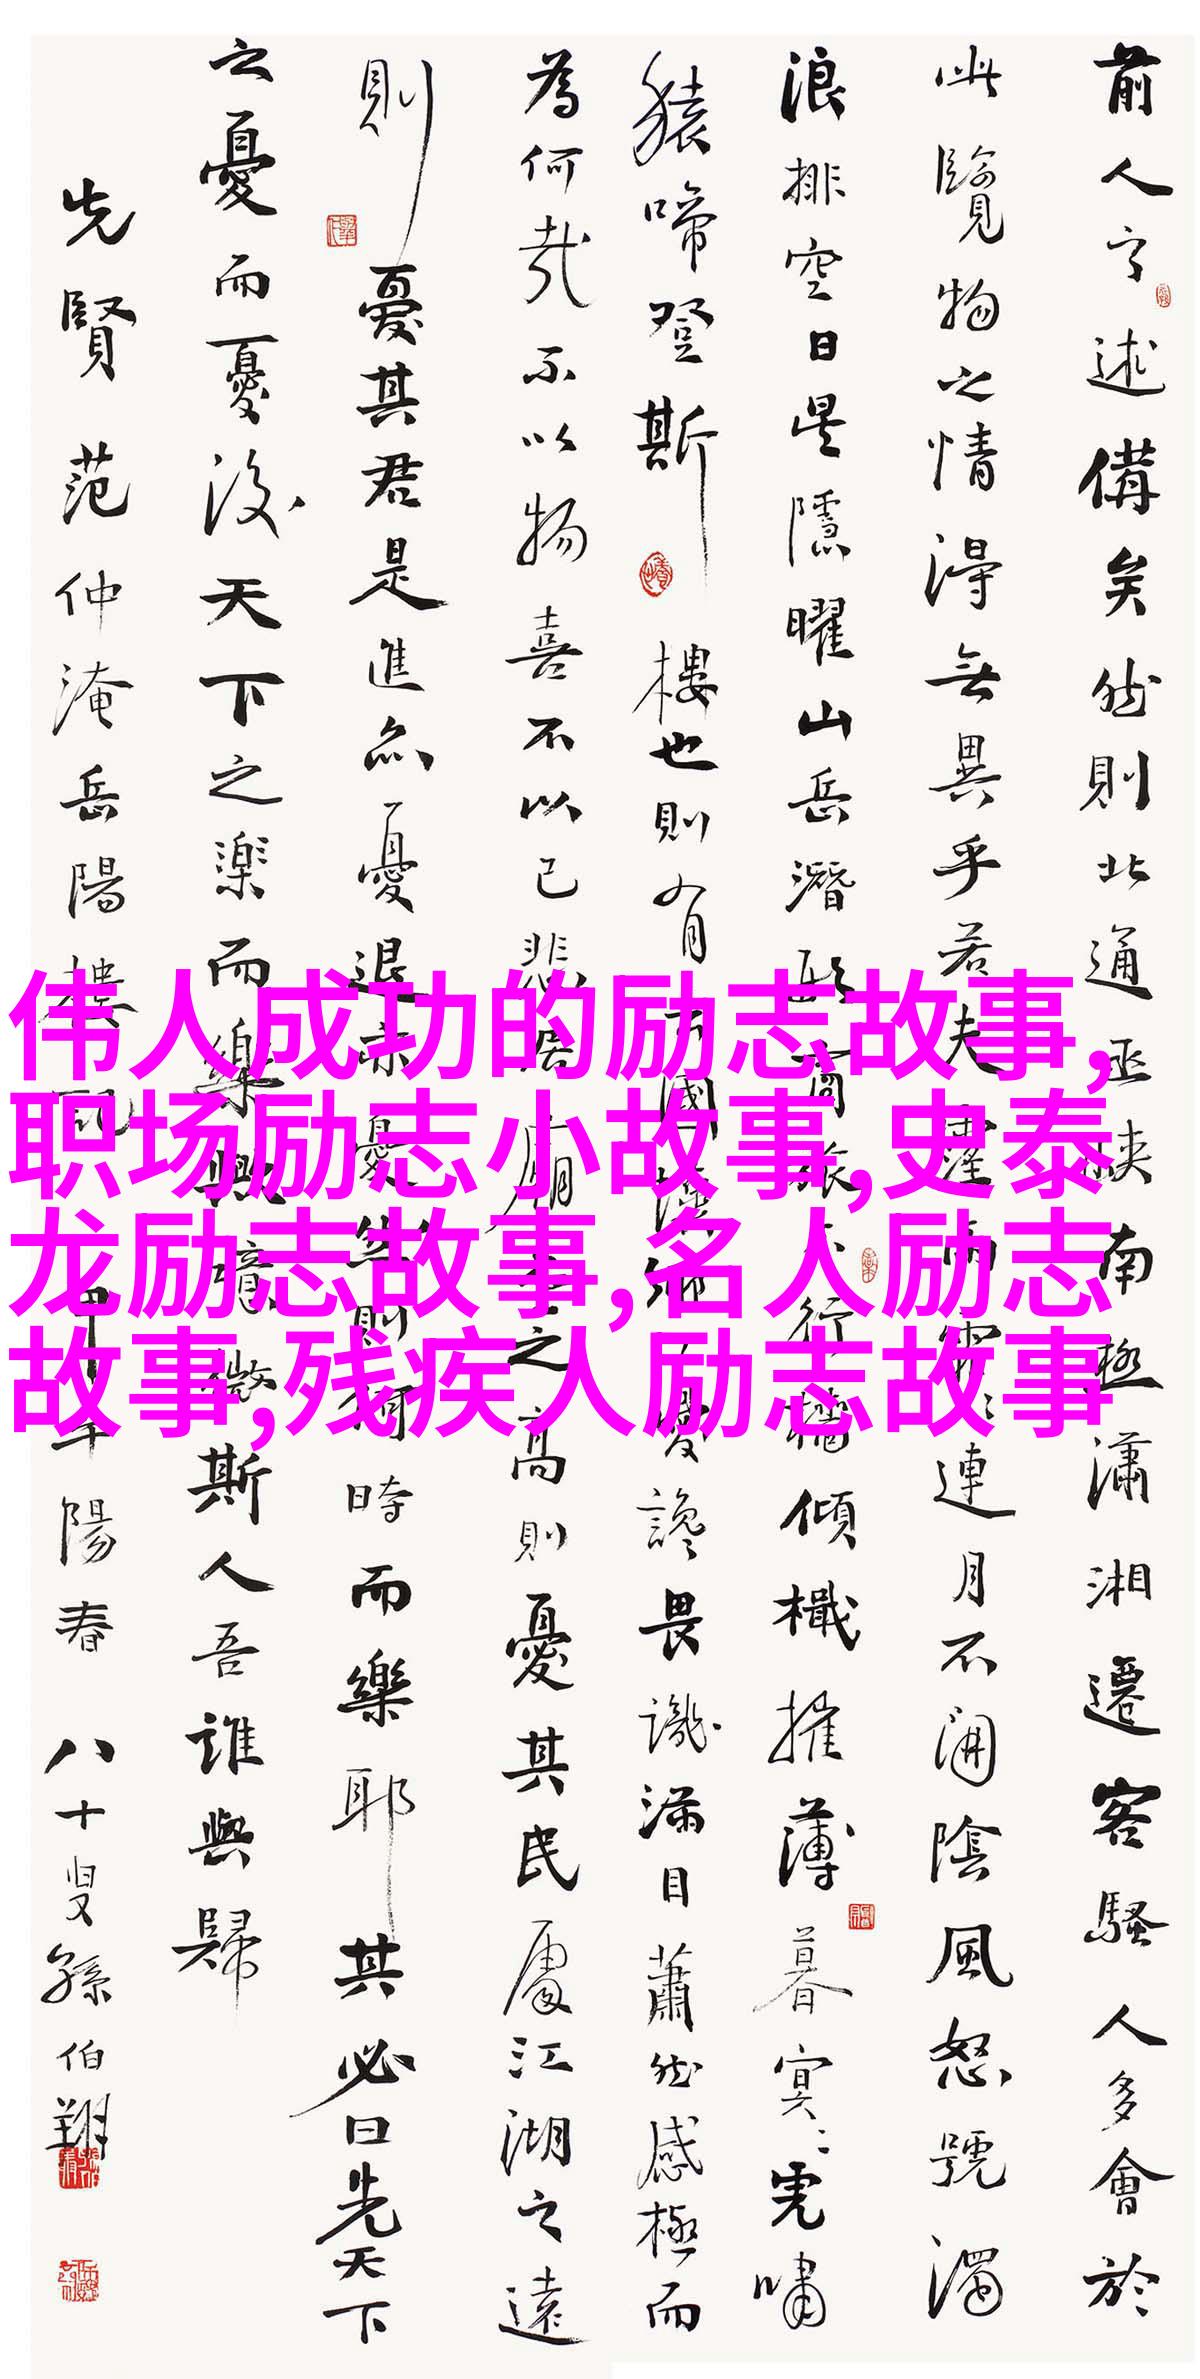 伟人成功的励志故事,
职场励志小故事,史泰
龙励志故事,名人励志
故事,残疾人励志故事
前人之述備矣然則北通巫峽南極瀟湘遷客騷人多會於
此覽物之情得無異乎若夫霪雨霏〻連月不開陰風怒號濁
浪排空日星隱曜山岳潛形商旅不行檣傾檝摧薄暮冥〻虎嘯
猿啼登斯樓也則有去國懷鄉憂讒畏譏滿目蕭然感極而
為何哉不以物喜不以己悲居廟堂之高則憂其民處江湖之遠
則憂其君是進亦憂退亦憂然則何時而樂耶其必曰先天下
之憂而憂後天下之樂而樂歟噫微斯人吾誰與歸
先賢范仲淹岳陽樓記甲午陽春八十叟孫伯翔